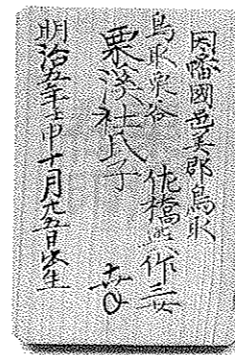 因幡國邑美郡鳥取
鳥取栗谷 佐橋 作三女
栗渓社氏子 幸
明治五年壬申十月 五日出生